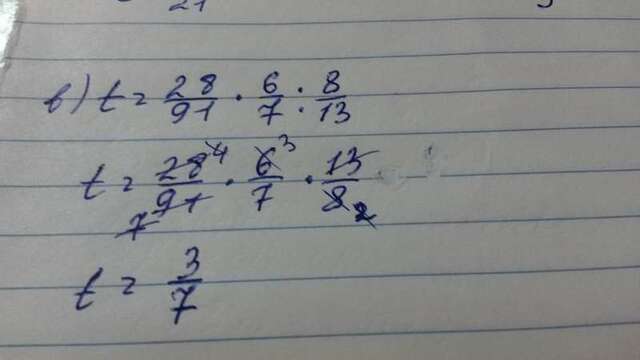 21
в) t = 28/91 · 6/7 : 8/13
t = 28 4/91 7 · 6 3/7 · 13/8 2
t = 3/7